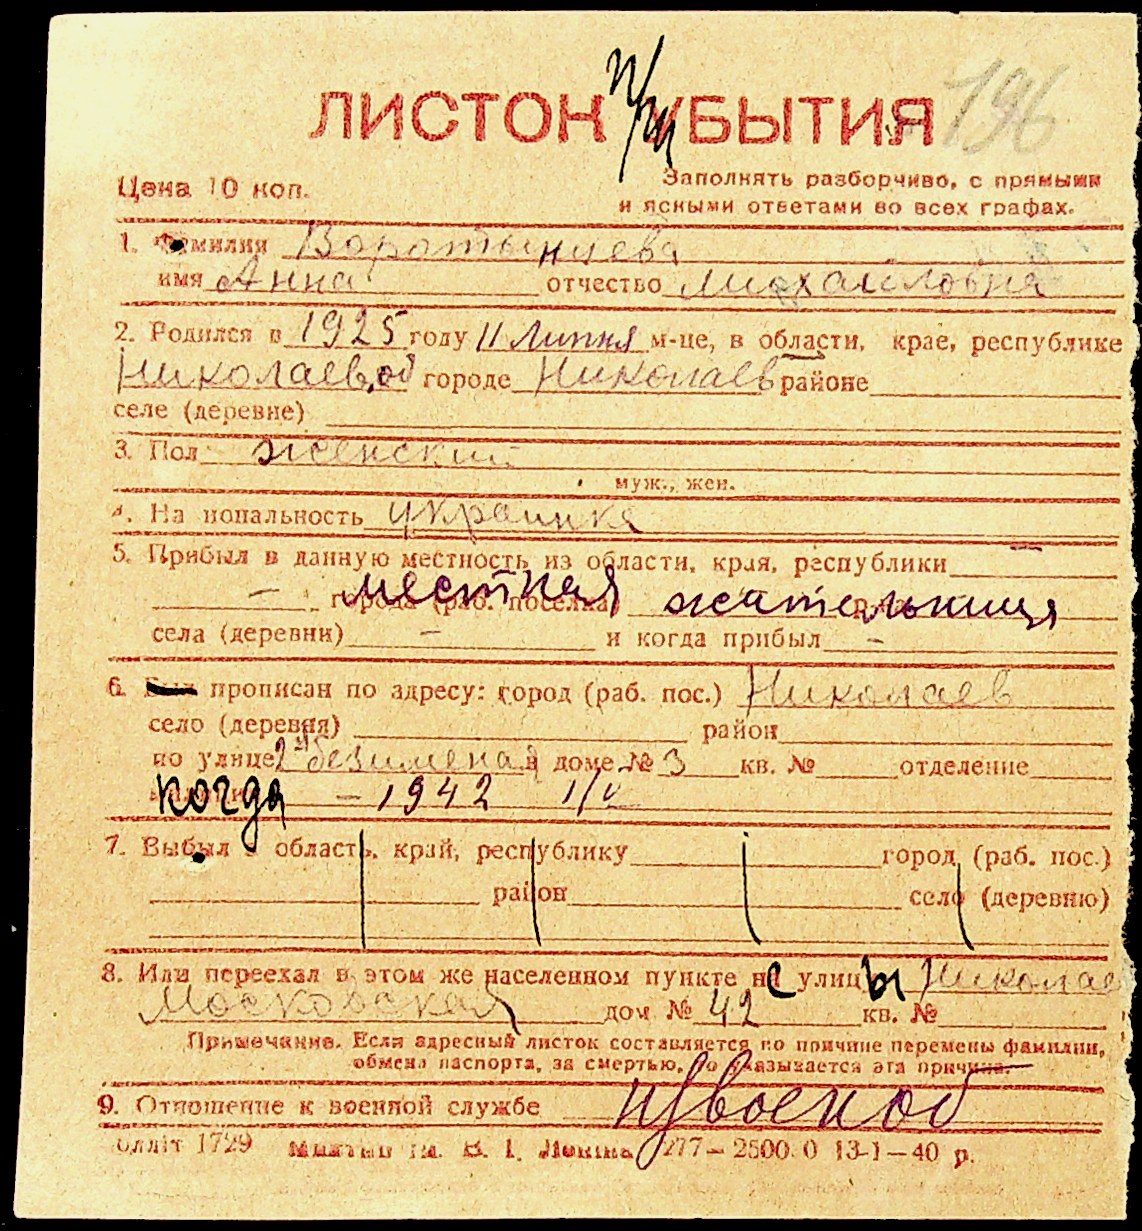 ЛИСТОК УБЫТИЯ 196
Цена 10 коп.
Заполнять разборчиво, с прямыми
и ясными ответами во всех графах.
1. Фамилия Воротынцева
имя Анна отчество Михайловна
2. Родился в 1925 году 11 Липня м-це, в области, крае, республике
Николаев. об городе Николаев районе
селе (деревне)
3. Пол женский
муж., жен.
4. Национальность украинка
5. Прибыл в данную местность из области, края, республики
— местная города (раб. поселка) жительница
села (деревни) — и когда прибыл —
6. Был прописан по адресу: город (раб. пос.) Николаев
село (деревня) район
по улице 2я безименая в доме № 3 кв. № отделение
когда — 1942 1/V
7. Выбыл в область, край, республику город (раб. пос.)
район село (деревню)
8. Или переехал в этом же населенном пункте на с улицы Николаев
Московская дом № 42 кв. №
Примечание. Если адресный листок составляется по причине перемены фамилии,
обмена паспорта, за смертью, то указывается эта причина.
9. Отношение к военной службе н/военоб
Облліт 1729 ім. В. І. Леніна 277—2500.0 13-1—40 р.